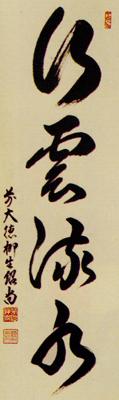 行雲流水
前大徳柳生紹尚